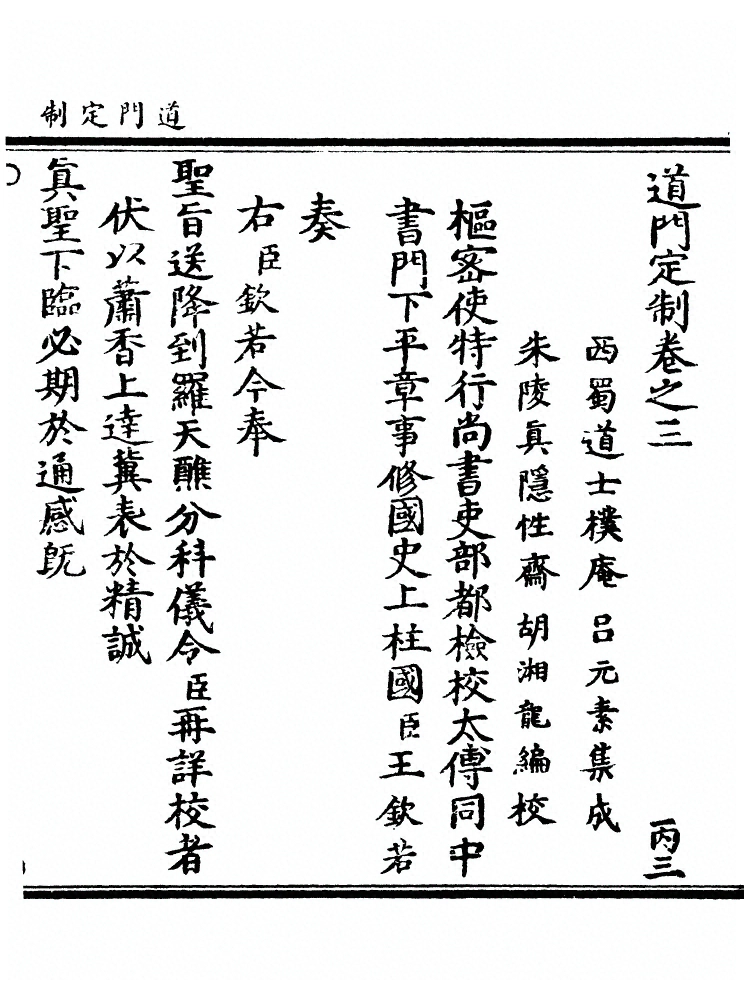 道門定制
道門定制卷之三 丙三
西蜀道士樸庵 呂元素集成
朱陵眞隱性齋 胡湘龍編校
樞密使特行尚書吏部都檢校太傅同中
書門下平章事修國史上柱國臣王欽若
奏
右臣欽若今奉
聖旨送降到羅天醮分科儀令臣再詳校者
伏以蕭香上達冀表於精誠
眞聖下臨必期於通感旣